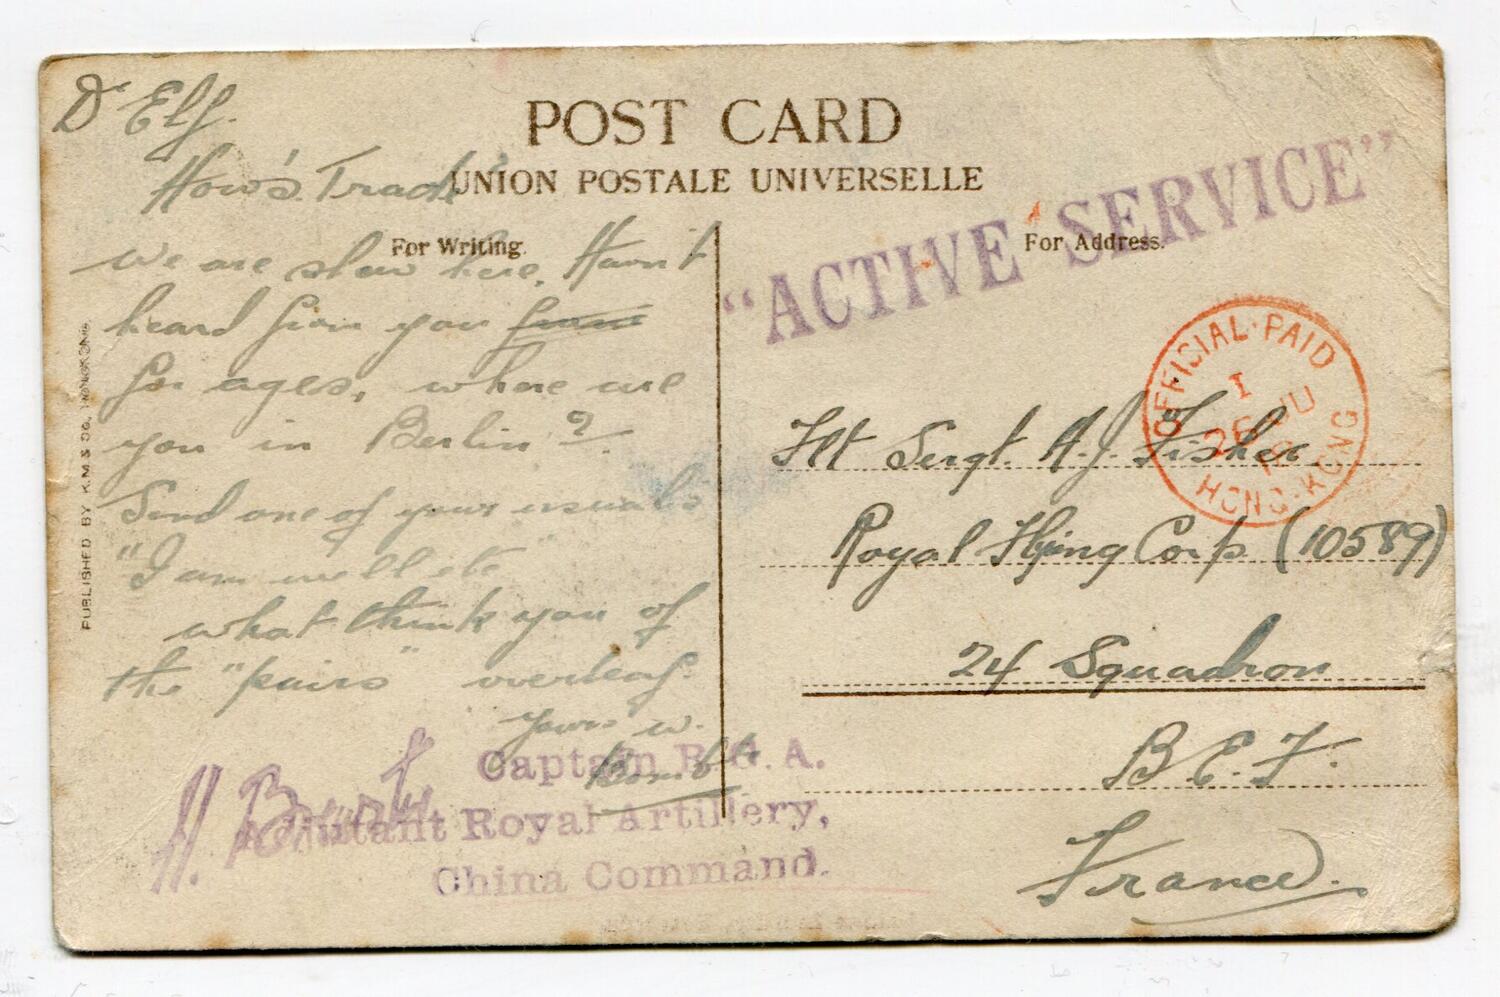 POST CARD
UNION POSTALE UNIVERSELLE
For Writing.
For Address.
"ACTIVE SERVICE"
Dr Elf.
How's Trade
we are slow here. Havn't
heard from you from
for ages, where are
you in Berlin?
Send one of your usuals
"I am well etc
what think you of
the "pairs" overleaf.
Yours
Captain R.G.A.
Adjutant Royal Artillery,
China Command.
OFFICIAL·PAID
1
26 JU
HONG·KONG
Flt Sergt. A.J. Fisher
Royal Flying Corps (10589)
24 Squadron
B.E.F.
France.
PUBLISHED BY K.M.& CO., HONGKONG.